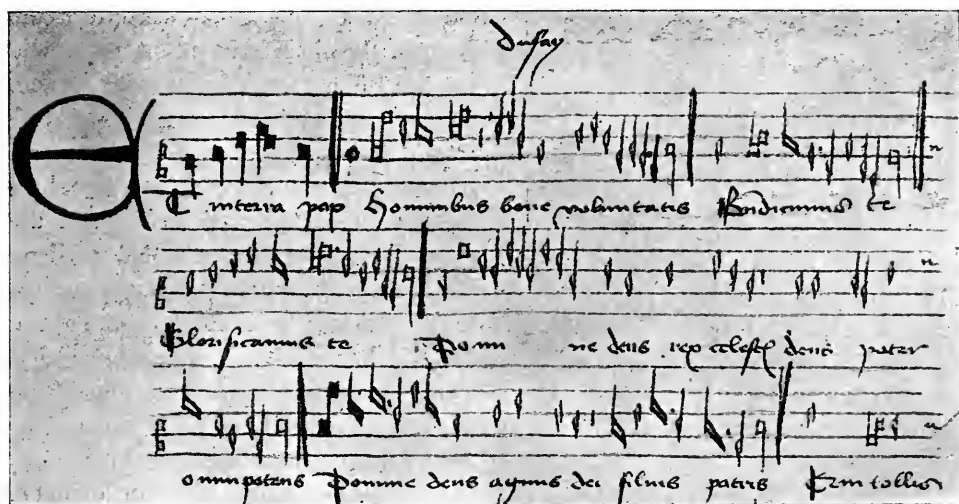 dufay
Et in terra pax hominibus bone voluntatis Bndicimus te
Glorificamus te Domine deus rex celest deus pater
omnipotens Domine deus agnus dei filius patris Qui tollis